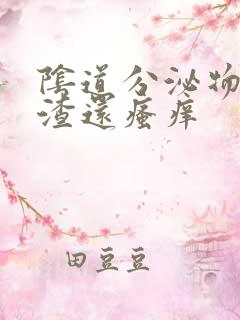 陰道分泌物
渣還瘙痒
田豆豆